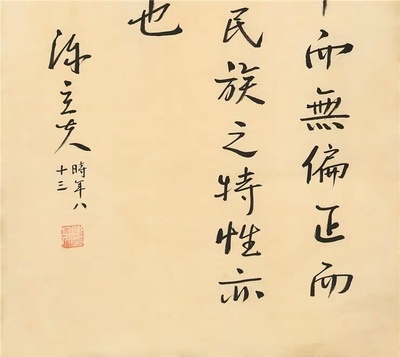 而無偏正而
民族之特性亦
也
陳立夫
時年八
十三